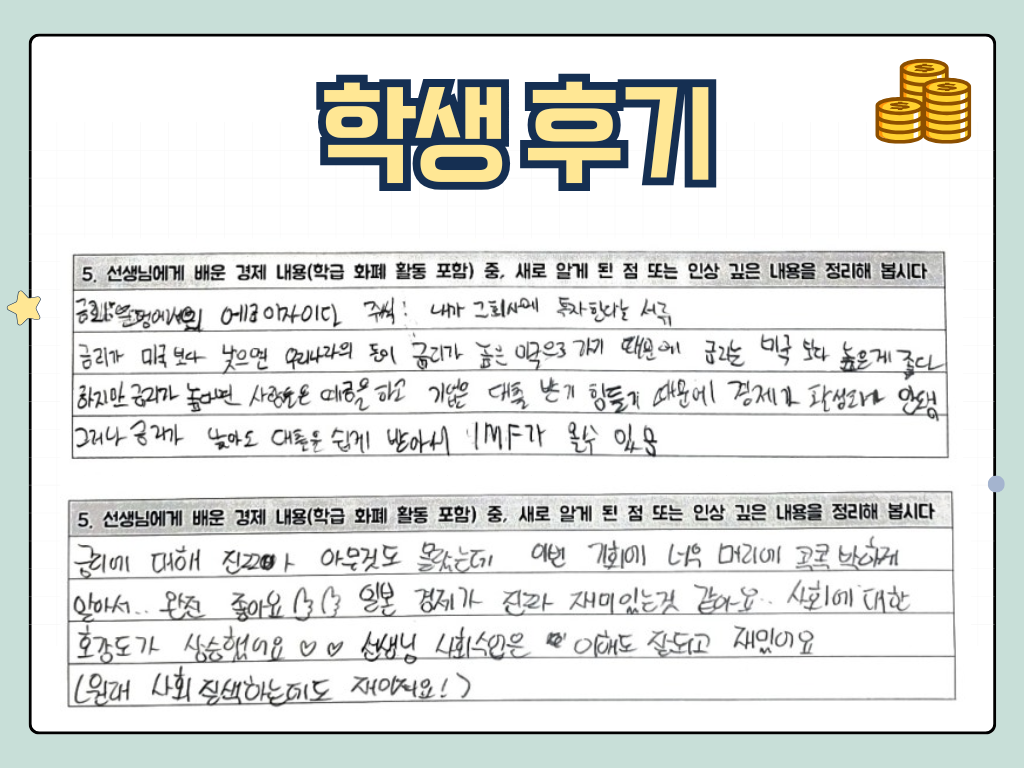 학생 후기
5. 선생님에게 배운 경제 내용(학급 화폐 활동 포함) 중, 새로 알게 된 점 또는 인상 깊은 내용을 정리해 봅시다
이자이다 주식: 내가 그 회사에 투자한다는 서류
금리가 미국보다 낮으면 우리나라의 돈이 금리가 높은 미국으로 가기 때문에 금리는 미국 보다 높은게 좋다
하지만 금리가 높으면 사람들은 예금을 하고 기업은 대출 받기 힘들기 때문에 경제가 활성화가 안됨
그러나 금리가 낮아도 대출을 쉽게 받아서 IMF가 올수 있음
5. 선생님에게 배운 경제 내용(학급 화폐 활동 포함) 중, 새로 알게 된 점 또는 인상 깊은 내용을 정리해 봅시다
금리에 대해 진짜 아무것도 몰랐는데 이번 기회에 너무 머리에 콕콕 박히게
알아서.. 완전 좋아요 일본 경제가 진짜 재미있는것 같아요.. 사회에 대한
호감도가 상승했어요 ♡ ♡ 선생님 사회수업은 이해도 잘되고 재밌어요
(원래 사회 질색하는데도 재미져요!)